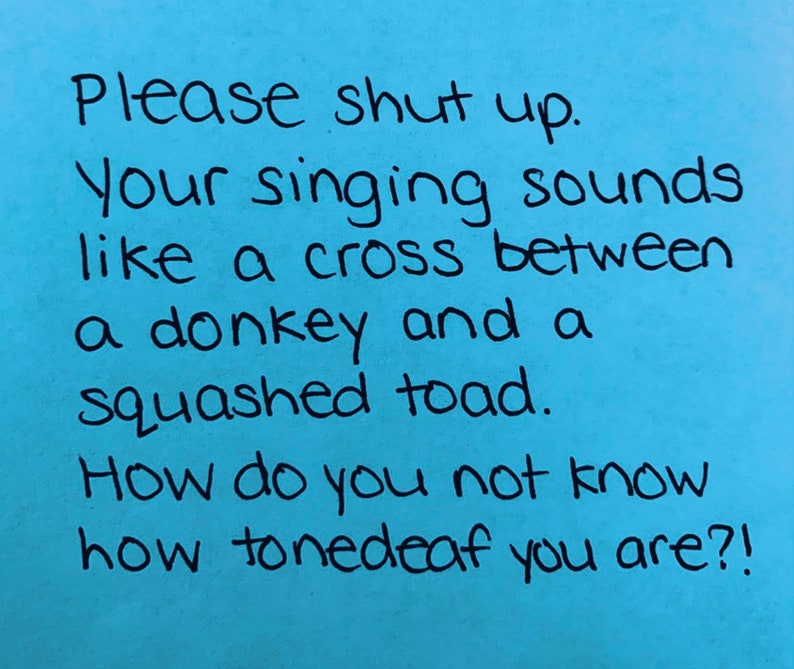 Please shut up.
Your singing sounds
like a cross between
a donkey and a
squashed toad.
How do you not know
how tonedeaf you are?!